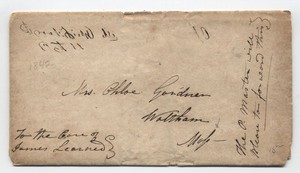 Mrs. Phloe Gardner
Waltham
Mss
To the Care of
James Learned
The P. Master will
please to forward this